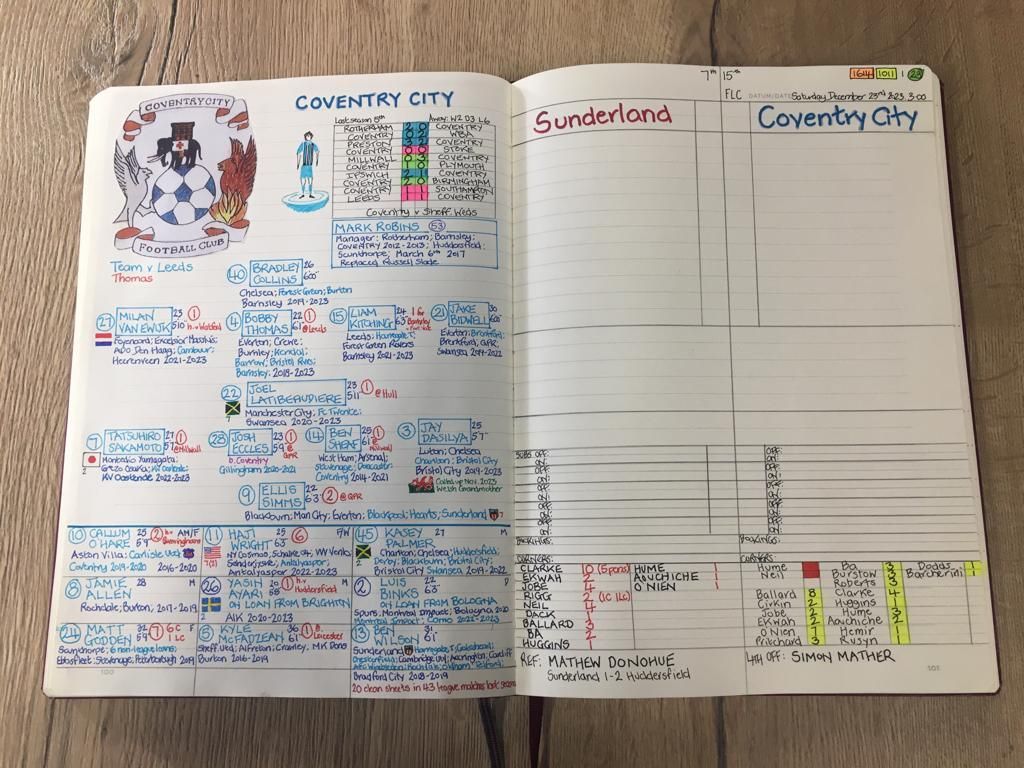 COVENTRY CITY
FOOTBALL CLUB
COVENTRY CITY
Last season 5th Away: W2 D3 L6
ROTHERHAM 2 0 COVENTRY
COVENTRY 0 2 WBA
PRESTON 3 2 COVENTRY
COVENTRY 0 0 STOKE
MILLWALL 0 3 COVENTRY
COVENTRY 1 0 PLYMOUTH
IPSWICH 2 1 COVENTRY
COVENTRY 2 0 BIRMINGHAM
COVENTRY 1 1 SOUTHAMPTON
LEEDS 1 1 COVENTRY
Coventry v Sheff Weds
MARK ROBINS 53
Manager: Rotherham; Barnsley;
COVENTRY 2012-2013; Huddersfield;
Scunthorpe; March 6th 2017
Replaced Russell Slade
Team v Leeds
Thomas
40 BRADLEY COLLINS 26 6'00"
Chelsea; Forest Green; Burton
Barnsley 2019-2023
27 MILAN VAN EWIJK 23 5'10 1 h.v Watford
Feyenoord; Excelsior Maassluis;
ADO Den Haag; Cambuur;
Heerenveen 2021-2023
4 BOBBY THOMAS 22 6'1 1 @Leeds
Everton; Crewe;
Burnley; Kendal;
Barrow; Bristol Rvrs;
Barnsley; 2018-2023
15 LIAM KITCHING 24 6'3 1 for Barnsley
Leeds; Harrogate T;
Forest Green Rovers
Barnsley 2021-2023
21 JAKE BIDWELL 30 6'00"
Everton; Brentford;
Brentford; QPR;
Swansea 2019-2022
22 JOEL LATIBEAUDIERE 23 5'11 1 @Hull
Manchester City; Fc Twente;
Swansea 2020-2023
7 TATSUHIRO SAKAMOTO 27 5'7 1 @Millwall
2
Montedio Yamagata;
Cerezo Osaka; KV Oostende;
KV Oostende 2022-2023
28 JOSH ECCLES 23 5'9 1 @QPR
b. Coventry
Gillingham 2020-2021
14 BEN SHEAF 25 6'1 1 @Millwall
West Ham; Arsenal;
Stevenage; Doncaster;
Coventry 2014-2021
3 JAY DASILVA 25 5'7"
Luton; Chelsea
Charlton; Bristol City
Bristol City 2019-2023
Called up Nov. 2023
Welsh Grandmother
9 ELLIS SIMMS 22 6'3" 2 @QPR
Blackburn; Man City; Everton; Blackpool; Hearts; Sunderland 7
10 CALLUM O'HARE 25 5'9 2 h.v Birmingham AM/F
Aston Villa; Carlisle Utd
Coventry 2019-2020 2016-2020
11 HAJI WRIGHT 25 6'3 6 F/W
7(2)
NY Cosmos; Schalke 04; VVV Venlo;
Sonderjyske; Antalyaspor;
Antalyaspor 2022-2023
45 KASEY PALMER 27 M
2
Charlton; Chelsea; Huddersfield;
Derby; Blackburn; Bristol City;
Bristol City Swansea 2019-2022
8 JAMIE ALLEN 28 M
Rochdale; Burton; 2017-2019
26 YASIN AYARI 20 5'8 1 h.v Huddersfield M
2
ON LOAN FROM BRIGHTON
AIK 2020-2023
2 LUIS BINKS 22 6'3 D
ON LOAN FROM BOLOGNA
Spurs; Montreal Impact; Bologna 2020
Montreal Impact; Como 2022-2023
24 MATT GODDEN 32 5'9 7 6C 1 LC F
Scunthorpe; 6 non-league loans;
Ebbsfleet; Stevenage; Peterborough 2019
5 KYLE McFADZEAN 36 6'1 1 @Leicester
Sheff Utd; Alfreton; Crawley; MK Dons
Burton 2016-2019
13 BEN WILSON 31 6'1"
Sunderland Harrogate T; Gateshead;
Chesterfield; Cambridge Utd; Accrington; Cardiff
AFC Wimbledon; Rochdale; Oldham; Telford;
Bradford City 2018-2019
20 clean sheets in 43 league matches last season
100
7th 15th
1614 1011 1 23
FLC DATUM/DATE Saturday, December 23rd 2023, 3:00
Sunderland Coventry City
SUBS OFF: OFF:
ON: ON:
OFF: OFF:
ON: ON:
OFF: OFF:
ON: ON:
OFF: OFF:
ON: ON:
OFF: OFF:
ON: ON:
BOOKINGS: BOOKINGS:
CORNERS: CORNERS:
CLARKE 10 (5 pens) HUME 1 Hume Ba 3 Dodds 1
EKWAH 2 AOUCHICHE 1 Neil Burstow 3 Barcherini 1
JOBE 4 O'NIEN 1 Roberts 3
RIGG 2 (1C 1LC) Ballard 8 Clarke 4
NEIL 4 Cirkin 2 Huggins 1
DACK 1 Jobe 4 Hume 3
BALLARD 3 Ekwah 2 Aouchiche 2
BA 2 O'Nien 7 Hemir 1
HUGGINS 1 Pritchard 3 Rusyn 1
REF: MATHEW DONOHUE 4TH OFF: SIMON MATHER
Sunderland 1-2 Huddersfield
101